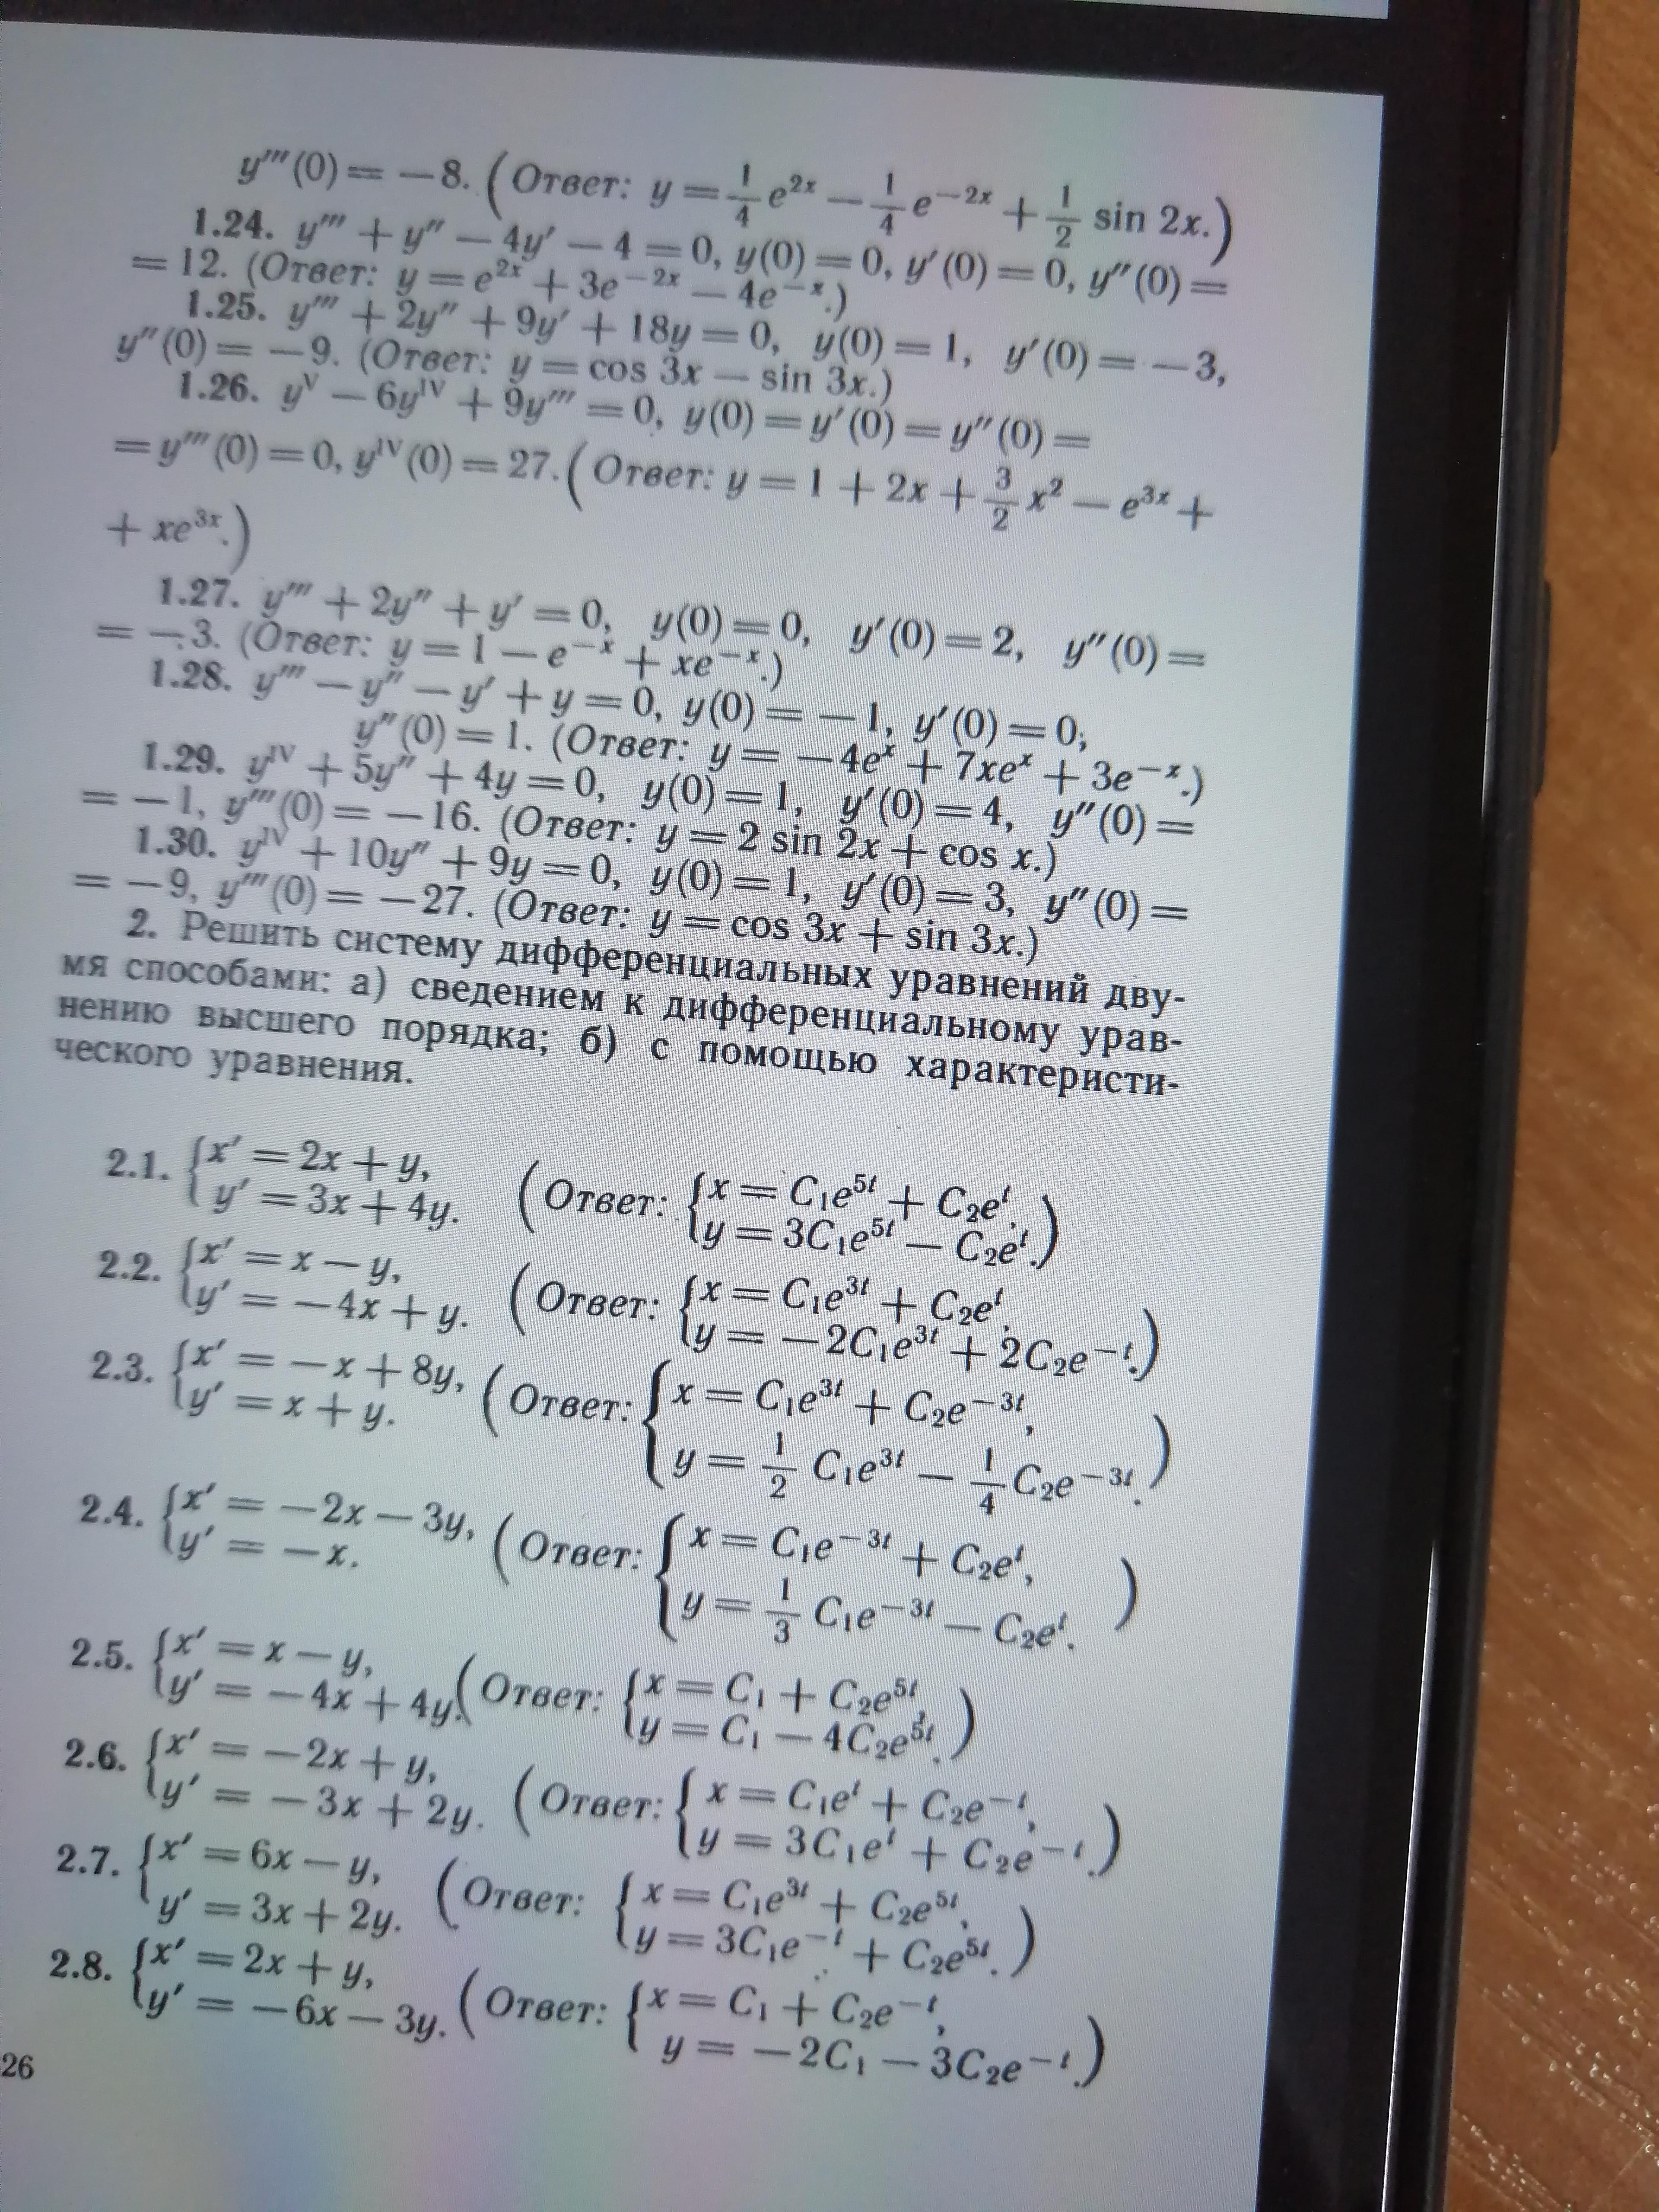 y‴(0) = −8. (Ответ: y = 1/4 e^{2x} − 1/4 e^{−2x} + 1/2 sin 2x.)
1.24. y‴ + y″ − 4y′ − 4 = 0, y(0) = 0, y′(0) = 0, y″(0) =
= 12. (Ответ: y = e^{2x} + 3e^{−2x} − 4e^{−x}.)
1.25. y‴ + 2y″ + 9y′ + 18y = 0, y(0) = 1, y′(0) = −3,
y″(0) = −9. (Ответ: y = cos 3x − sin 3x.)
1.26. y^V − 6y^{IV} + 9y‴ = 0, y(0) = y′(0) = y″(0) =
= y‴(0) = 0, y^{IV}(0) = 27. (Ответ: y = 1 + 2x + 3/2 x² − e^{3x} +
+ xe^{3x}.)
1.27. y‴ + 2y″ + y′ = 0, y(0) = 0, y′(0) = 2, y″(0) =
= −3. (Ответ: y = 1 − e^{−x} + xe^{−x}.)
1.28. y‴ − y″ − y′ + y = 0, y(0) = −1, y′(0) = 0,
y″(0) = 1. (Ответ: y = −4e^x + 7xe^x + 3e^{−x}.)
1.29. y^{IV} + 5y″ + 4y = 0, y(0) = 1, y′(0) = 4, y″(0) =
= −1, y‴(0) = −16. (Ответ: y = 2 sin 2x + cos x.)
1.30. y^{IV} + 10y″ + 9y = 0, y(0) = 1, y′(0) = 3, y″(0) =
= −9, y‴(0) = −27. (Ответ: y = cos 3x + sin 3x.)
2. Решить систему дифференциальных уравнений дву-
мя способами: а) сведением к дифференциальному урав-
нению высшего порядка; б) с помощью характеристи-
ческого уравнения.
2.1. {x′ = 2x + y, (Ответ: {x = C₁e^{5t} + C₂e^t,
y′ = 3x + 4y. y = 3C₁e^{5t} − C₂e^t.)
2.2. {x′ = x − y, (Ответ: {x = C₁e^{3t} + C₂e^t,
y′ = −4x + y. y = −2C₁e^{3t} + 2C₂e^{−t}.)
2.3. {x′ = −x + 8y, (Ответ: {x = C₁e^{3t} + C₂e^{−3t},
y′ = x + y. y = 1/2 C₁e^{3t} − 1/4 C₂e^{−3t}.)
2.4. {x′ = −2x − 3y, (Ответ: {x = C₁e^{−3t} + C₂e^t,
y′ = −x. y = 1/3 C₁e^{−3t} − C₂e^t.)
2.5. {x′ = x − y, (Ответ: {x = C₁ + C₂e^{5t},
y′ = −4x + 4y. y = C₁ − 4C₂e^{5t}.)
2.6. {x′ = −2x + y, (Ответ: {x = C₁e^t + C₂e^{−t},
y′ = −3x + 2y. y = 3C₁e^t + C₂e^{−t}.)
2.7. {x′ = 6x − y, (Ответ: {x = C₁e^{3t} + C₂e^{5t},
y′ = 3x + 2y. y = 3C₁e^{−t} + C₂e^{5t}.)
2.8. {x′ = 2x + y, (Ответ: {x = C₁ + C₂e^{−t},
y′ = −6x − 3y. y = −2C₁ − 3C₂e^{−t}.)
26